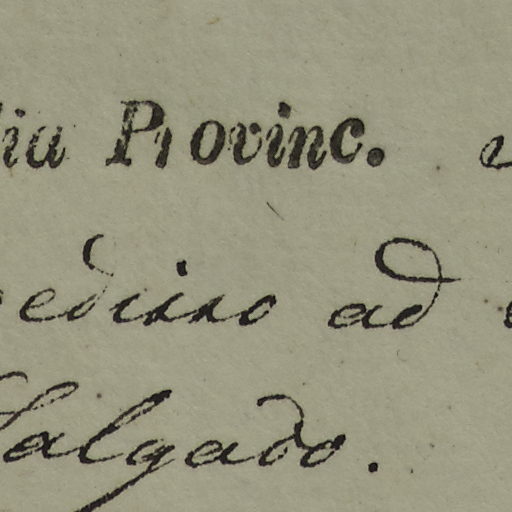 lia Provinc. e
edisso ad
Salgado.